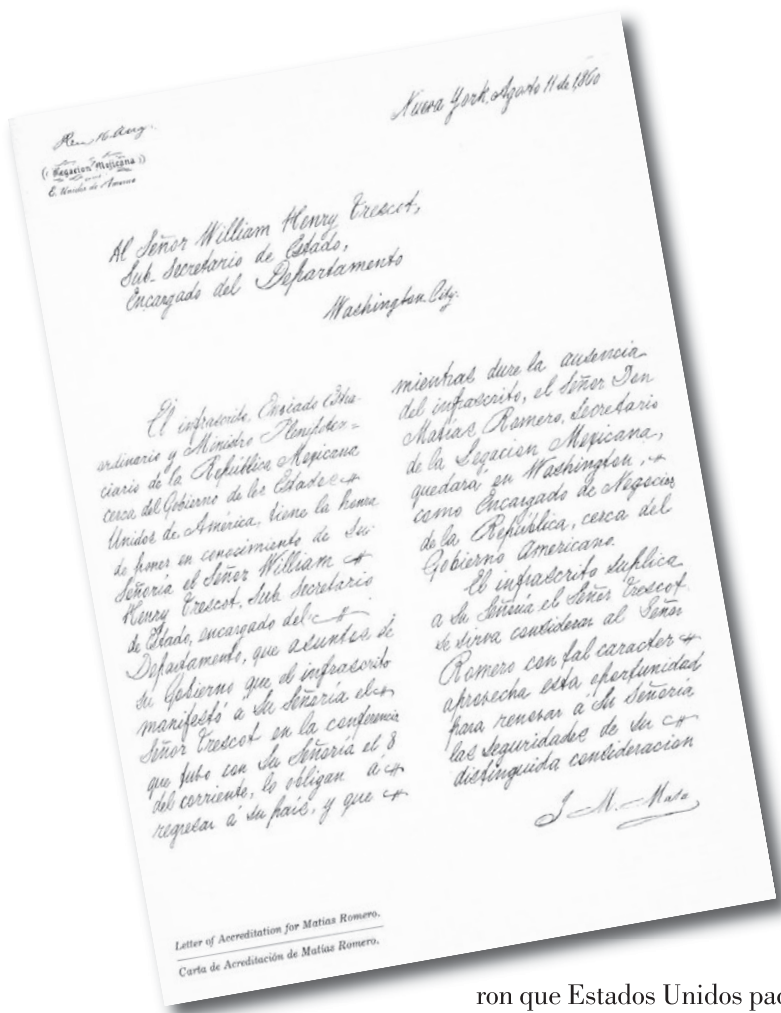 Nueva York, Agosto 11 de 1860
Legacion Mejicana
E. Unidos de America
Al Señor William Henry Trescot,
Sub-Secretario de Estado,
Encargado del Departamento
Washington City.
El infrascrito, Enviado Estra-
ordinario y Ministro Plenipoten=
ciario de la República Mexicana
cerca del Gobierno de los Estados
Unidos de América, tiene la honra
de poner en conocimiento de Su
Señoria el Señor William
Henry Trescot, Sub Secretario
de Estado, encargado del
Departamento, que asuntos de
su Gobierno que el infrascrito
manifestó á Su Señoría el
Señor Trescot en la conferencia
que tubo con Su Señoría el 8
del corriente, lo obligan á
regresar á su país, y que
mientras dure la ausencia
del infrascrito, el Señor Don
Matías Romero, Secretario
de la Legacion Mexicana,
quedará en Washington,
como Encargado de Negocios
de la República, cerca del
Gobierno Americano.
El infrascrito suplica
a Su Señoría el Señor Trescot
se sirva considerar al Señor
Romero con tal caracter
aprovecha esta oportunidad
para renovar á Su Señoría
las seguridades de su
distinguida consideracion
J. M. Mata
Letter of Accreditation for Matias Romero.
Carta de Acreditación de Matías Romero.
ron que Estados Unidos